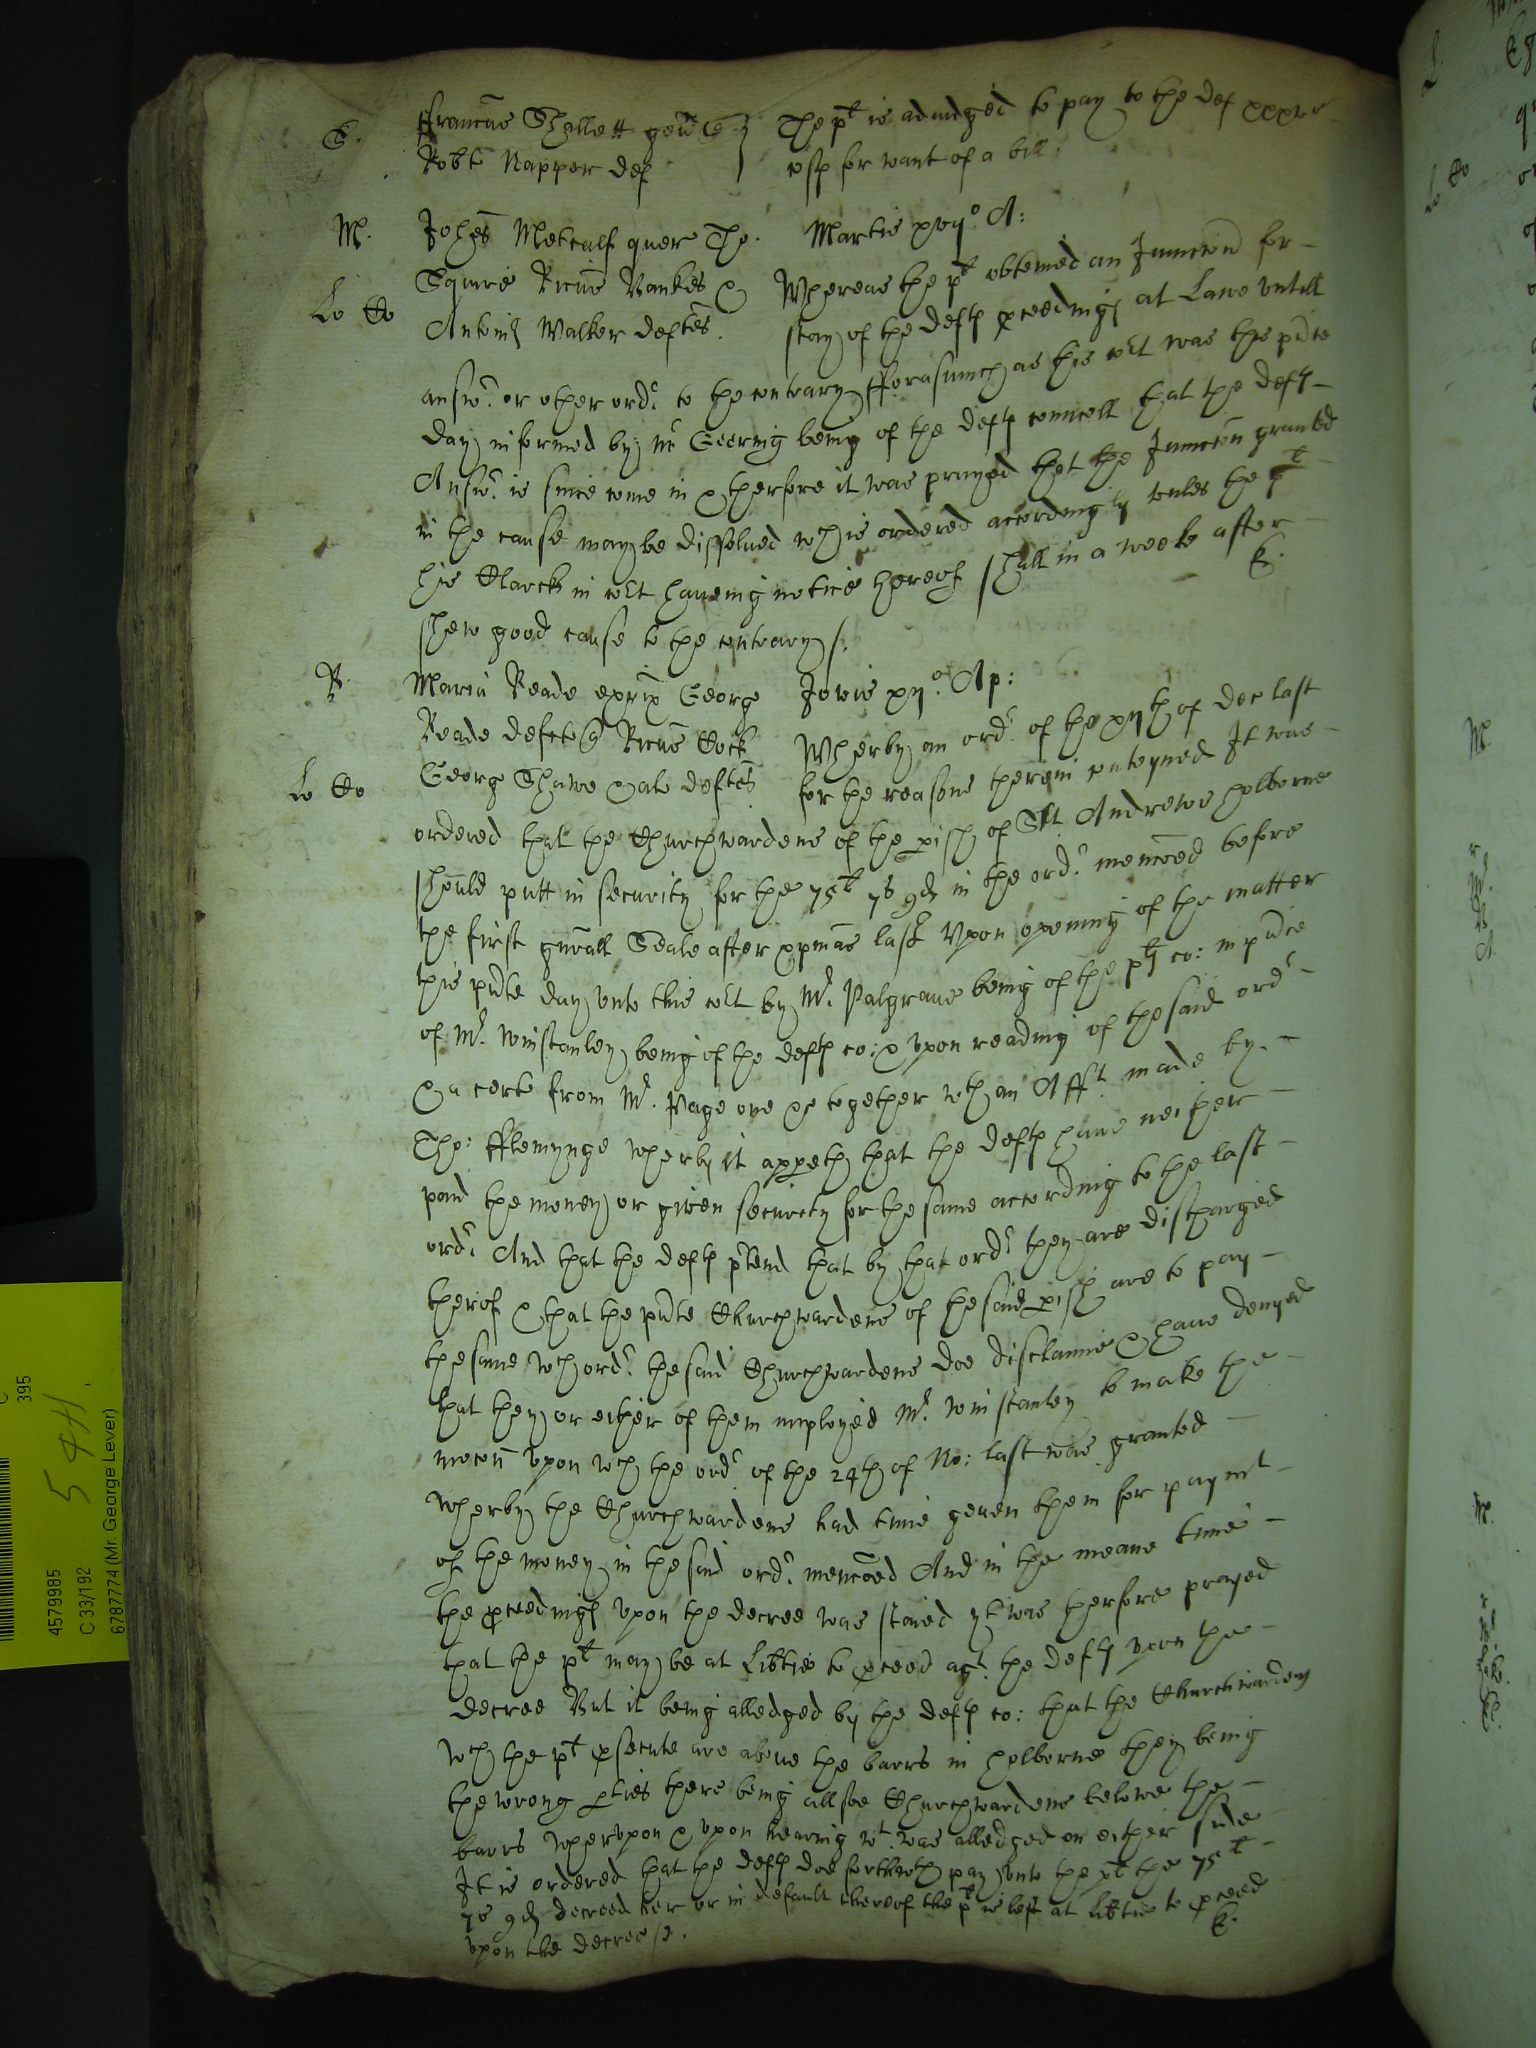 S. ffrancus Shallett gen q) The plt is adiudged to pay to the def xxxs
Robt Napper def cosp for want of a bill.
M. Johes Metcalf quer Tho. Martis xvijo A:
Squire Ricus Bankes &
Lo Co Antoni Walker deftes. Whereas the plt obteined an Iniunccon for
stay of the defts pceedings at Lawe vntill
answr. or other ordr. to the contrary fforasmuch as this cort was this pnte
day informed by mr Geering being of the defts councell that the defts
Answr. is since come in & therfore it was prayed that the Iniuncon granted
in the cause may be dissolued wch is ordered accordingly vnles the plt
his Clarck in cort haueing notice hereof shall in a weeke after
shew good cause to the contrary /.
R. Maria Reade exrix George Jovis xijo. Ap:
Reade defcti q) Ricus Cock
Lo Co George Shawe & als deftes Wherby an ordr. of the xijth of Dec last
for the reasons therein conteyned It was
ordered that the Churchwardens of the pish of St Andrewe Holborne
should putt in security for the 75l 7s 9d in the ordr. menconed before
the first gnrall Seale after xpmas last Vpon opening of the matter
this pnte day vnto this cort by Mr. Palgraue being of the plts co: in pnce
of Mr. Winstanley being of the defts co: & vpon reading of the said ordr
& a certe from Mr. Page one &c together wth an Afft made by
Tho: fflemynge wherby it appeth that the defts haue neither
paid the money or given security for the same according to the last
ordr. And that the defts ptend that by that ordr they are discharged
therof & that the pnte Churchwardens of the said pish are to pay
the same wch ordr. the said Churchwardens doe disclaime & haue denyed
that they or either of them imployed Mr. Winstanley to make the
mocon vpon wch the ordr of the 24th of No: last was granted
wherby the Churchwardens had time geuen them for paymt
of the money in the said ordr. menconed And in the meane time
the pceedings vpon the decree was staied yt was therfore prayed
that the plt may be at Libtie to pceed agt. the defts vpon the
decree But it being alledged by the defts co: that the Churchwardens
wch the plt psecute are aboue the barrs in Holborne they being
the wrong pties there being allsoe Churchwardens belowe the
barrs wherupon & vpon hearing wt was alledged on either side
It is ordered that the defts doe forthwth pay vnto the plt the 75l
7s 9d decreed her or in default thereof the plt is left at libtie to pceed
vpon the decree /.
395
4579985
C 33/192
6787774 (Mr. George Lever)